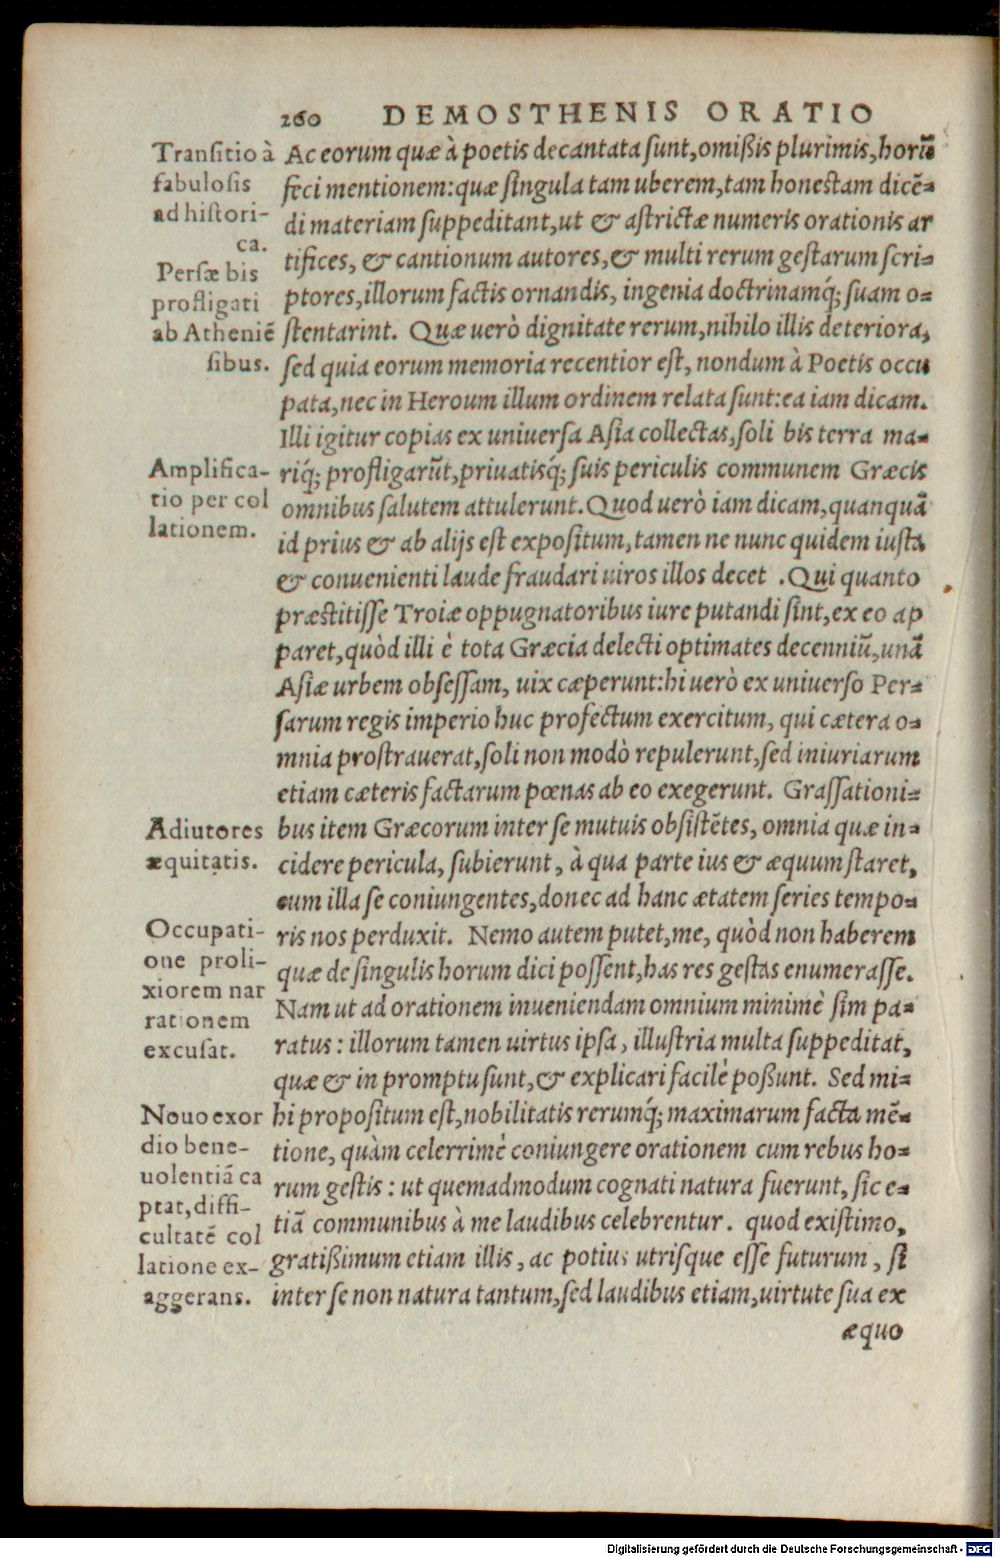 260 DEMOSTHENIS ORATIO
Transitio à
fabulosis
ad histori-
ca.
Persæ bis
profligati
ab Atheniē
sibus.
Amplifica-
tio per col
lationem.
Adiutores
æquitatis.
Occupati-
one proli-
xiorem nar
rationem
excusat.
Nouo exor
dio bene-
uolentiā ca
ptat, diffi-
cultatē col
latione ex-
aggerans.
Ac eorum quæ à poetis decantata sunt, omißis plurimis, horũ
feci mentionem: quæ singula tam uberem, tam honestam dicē-
di materiam suppeditant, ut & astrictæ numeris orationis ar
tifices, & cantionum autores, & multi rerum gestarum scri-
ptores, illorum factis ornandis, ingenia doctrinamq́; suam o-
stentarint. Quæ uerò dignitate rerum, nihilo illis deteriora,
sed quia eorum memoria recentior est, nondum à Poetis occu
pata, nec in Heroum illum ordinem relata sunt: ea iam dicam.
Illi igitur copias ex uniuersa Asia collectas, soli bis terra ma-
riq́; profligarũt, priuatisq́; suis periculis communem Græcis
omnibus salutem attulerunt. Quod uerò iam dicam, quanquā
id prius & ab alijs est expositum, tamen ne nunc quidem iusta
& conuenienti laude fraudari uiros illos decet . Qui quanto
præstitisse Troiæ oppugnatoribus iure putandi sint, ex eo ap
paret, quòd illi è tota Græcia delecti optimates decenniũ, unā
Asiæ urbem obsessam, uix cæperunt: hi uerò ex uniuerso Per-
sarum regis imperio huc profectum exercitum, qui cætera o-
mnia prostrauerat, soli non modò repulerunt, sed iniuriarum
etiam cæteris factarum pœnas ab eo exegerunt. Grassationi-
bus item Græcorum inter se mutuis obsistētes, omnia quæ in-
cidere pericula, subierunt, à qua parte ius & æquum staret,
cum illa se coniungentes, donec ad hanc ætatem series tempo-
ris nos perduxit. Nemo autem putet, me, quòd non haberem
quæ de singulis horum dici possent, has res gestas enumerasse.
Nam ut ad orationem inueniendam omnium minimè sim pa-
ratus: illorum tamen uirtus ipsa, illustria multa suppeditat,
quæ & in promptu sunt, & explicari facilè poßunt. Sed mi-
hi propositum est, nobilitatis rerumq́; maximarum facta mē-
tione, quàm celerrimè coniungere orationem cum rebus ho-
rum gestis: ut quemadmodum cognati natura fuerunt, sic e-
tiā communibus à me laudibus celebrentur. quod existimo,
gratißimum etiam illis, ac potius utrisque esse futurum, si
inter se non natura tantum, sed laudibus etiam, uirtute sua ex
æquo
Digitalisierung gefördert durch die Deutsche Forschungsgemeinschaft - DFG